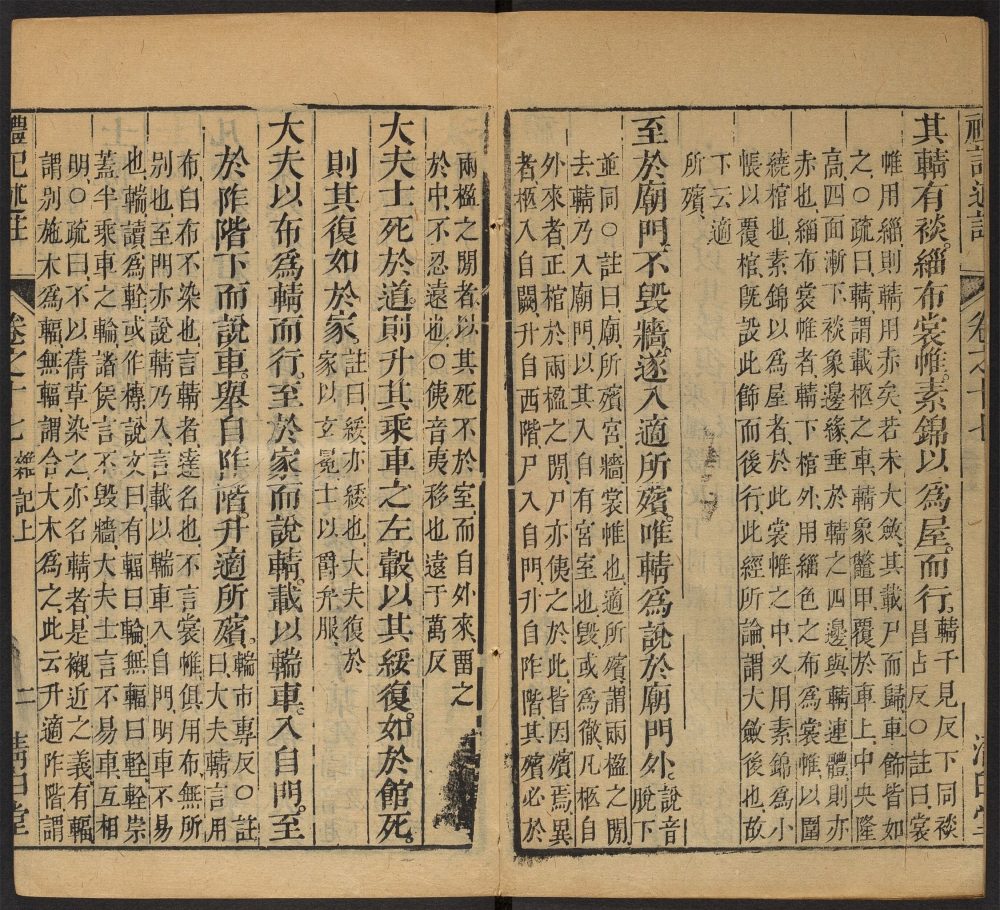 禮記述註
卷之十七
清白堂
其輤有裧緇布裳帷素錦以爲屋而行輤千見反下同裧
昌占反○註曰裳
帷用緇則輤用赤矣若未大斂其載尸而歸車飾皆如
之○疏曰輤謂載柩之車輤象鼈甲覆於車上中央隆
高四面漸下裧象邊緣垂於輤之四邊與輤連體則亦
赤也緇布裳帷者輤下棺外用緇色之布爲裳帷以圍
繞棺也素錦以爲屋者於此裳帷之中又用素錦爲小
帳以覆棺旣設此飾而後行此經所論謂大斂後也故
下云適
所殯
至於廟門不毀牆遂入適所殯唯輤爲說於廟門外說音
脫下
並同○註曰廟所殯宮牆裳帷也適所殯謂兩楹之閒
去輤乃入廟門以其入自有宮室也毀或爲徹凡柩自
外來者正棺於兩楹之閒尸亦侇之於此皆因殯焉異
者柩入自闕升自西階尸入自門升自阼階其殯必於
兩楹之閒者以其死不於室而自外來畱之
於中不忍遠也○侇音夷移也遠于萬反
大夫士死於道則升其乘車之左轂以其綏復如於館死
則其復如於家註曰綏亦緌也大夫復於
家以玄冕士以爵弁服
大夫以布爲輤而行至於家而說輤載以輲車入自門至
於阼階下而說車舉自阼階升適所殯輲市專反○註
曰大夫輤言用
布白布不染也言輤者達名也不言裳帷俱用布無所
別也至門亦說輤乃入言載以輲車入自門明車不易
也輲讀爲輇或作槫說文曰有輻曰輪無輻曰輇輇崇
蓋半乘車之輪諸侯言不毀牆大夫士言不易車互相
明○疏曰不以蒨草染之亦名輤者是襯近之義有輻
謂別施木爲輻無輻謂合大木爲之此云升適阼階謂
禮記述註
卷之十七 雜記上
二
清白堂